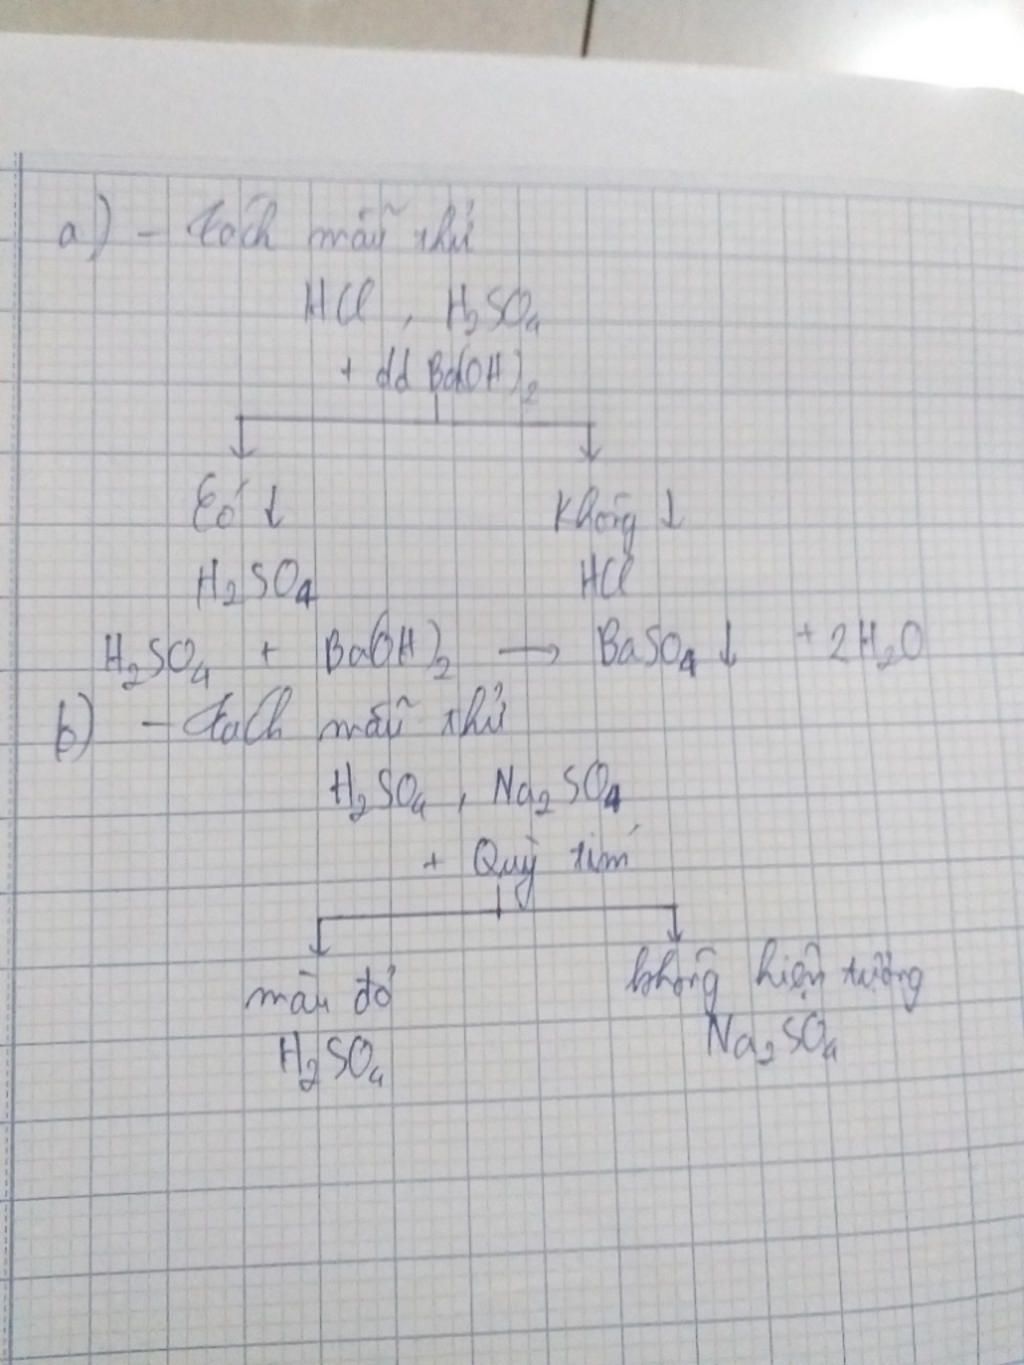 a) - tách mẫu thử
HCl , H₂SO₄
+ dd Ba(OH)₂
Có ↓ Không ↓
H₂SO₄ HCl
H₂SO₄ + Ba(OH)₂ → BaSO₄ ↓ + 2H₂O
b) - tách mẫu thử
H₂SO₄ , Na₂SO₄
+ Quỳ tím
màu đỏ không hiện tượng
H₂SO₄ Na₂SO₄